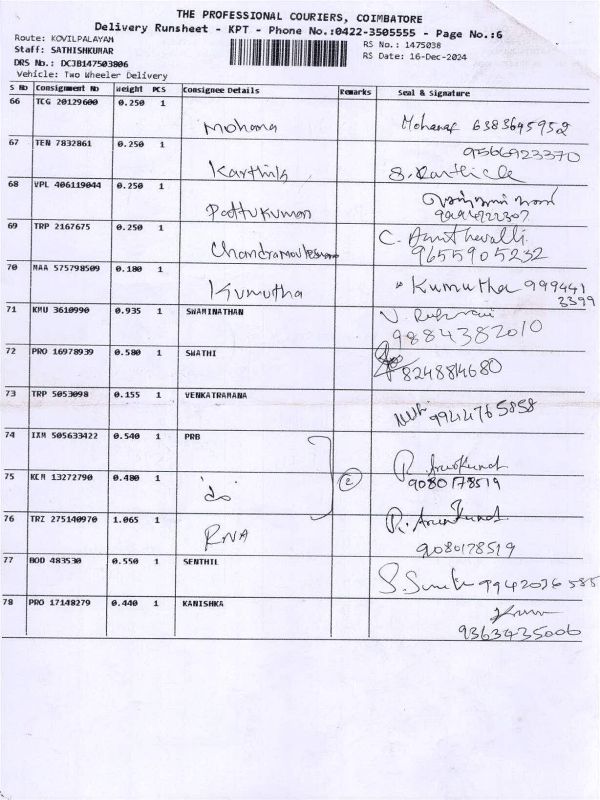 THE PROFESSIONAL COURIERS, COIMBATORE
Delivery Runsheet - KPT - Phone No.:0422-3505555 - Page No.:6
Route: KOVILPALAYAM
RS No.: 1475038
Staff: SATHISHKUMAR
RS Date: 16-Dec-2024
DRS No.: DCJB147503806
Vehicle: Two Wheeler Delivery
S No Consignment No Weight PCS Consignee Details Remarks Seal & Signature
66 TCG 20129600 0.250 1
Mohana Mohanap 6383695952
67 TEN 7832861 0.250 1 9566923370
Karthik S. Karthick
68 VPL 406119044 0.250 1
Pattukumar
69 TRP 2167675 0.250 1 C. Amuthavalli
9655905232
70 MAA 575798509 0.180 1
Kumutha Kumutha 999441
3399
71 KMU 3610990 0.935 1 SWAMINATHAN
9884382010
72 PRO 16978939 0.580 1 SWATHI
8248814680
73 TRP 5053098 0.155 1 VENKATRAMANA
99424765858
74 IXM 505633422 0.540 1 PRB
9080178519
75 KCM 13272790 0.480 1 2
do
76 TRZ 275140970 1.065 1
RNA 9080178519
77 BOD 483530 0.550 1 SENTHIL
9942036585
78 PRO 17148279 0.440 1 KANISHKA
9363435006